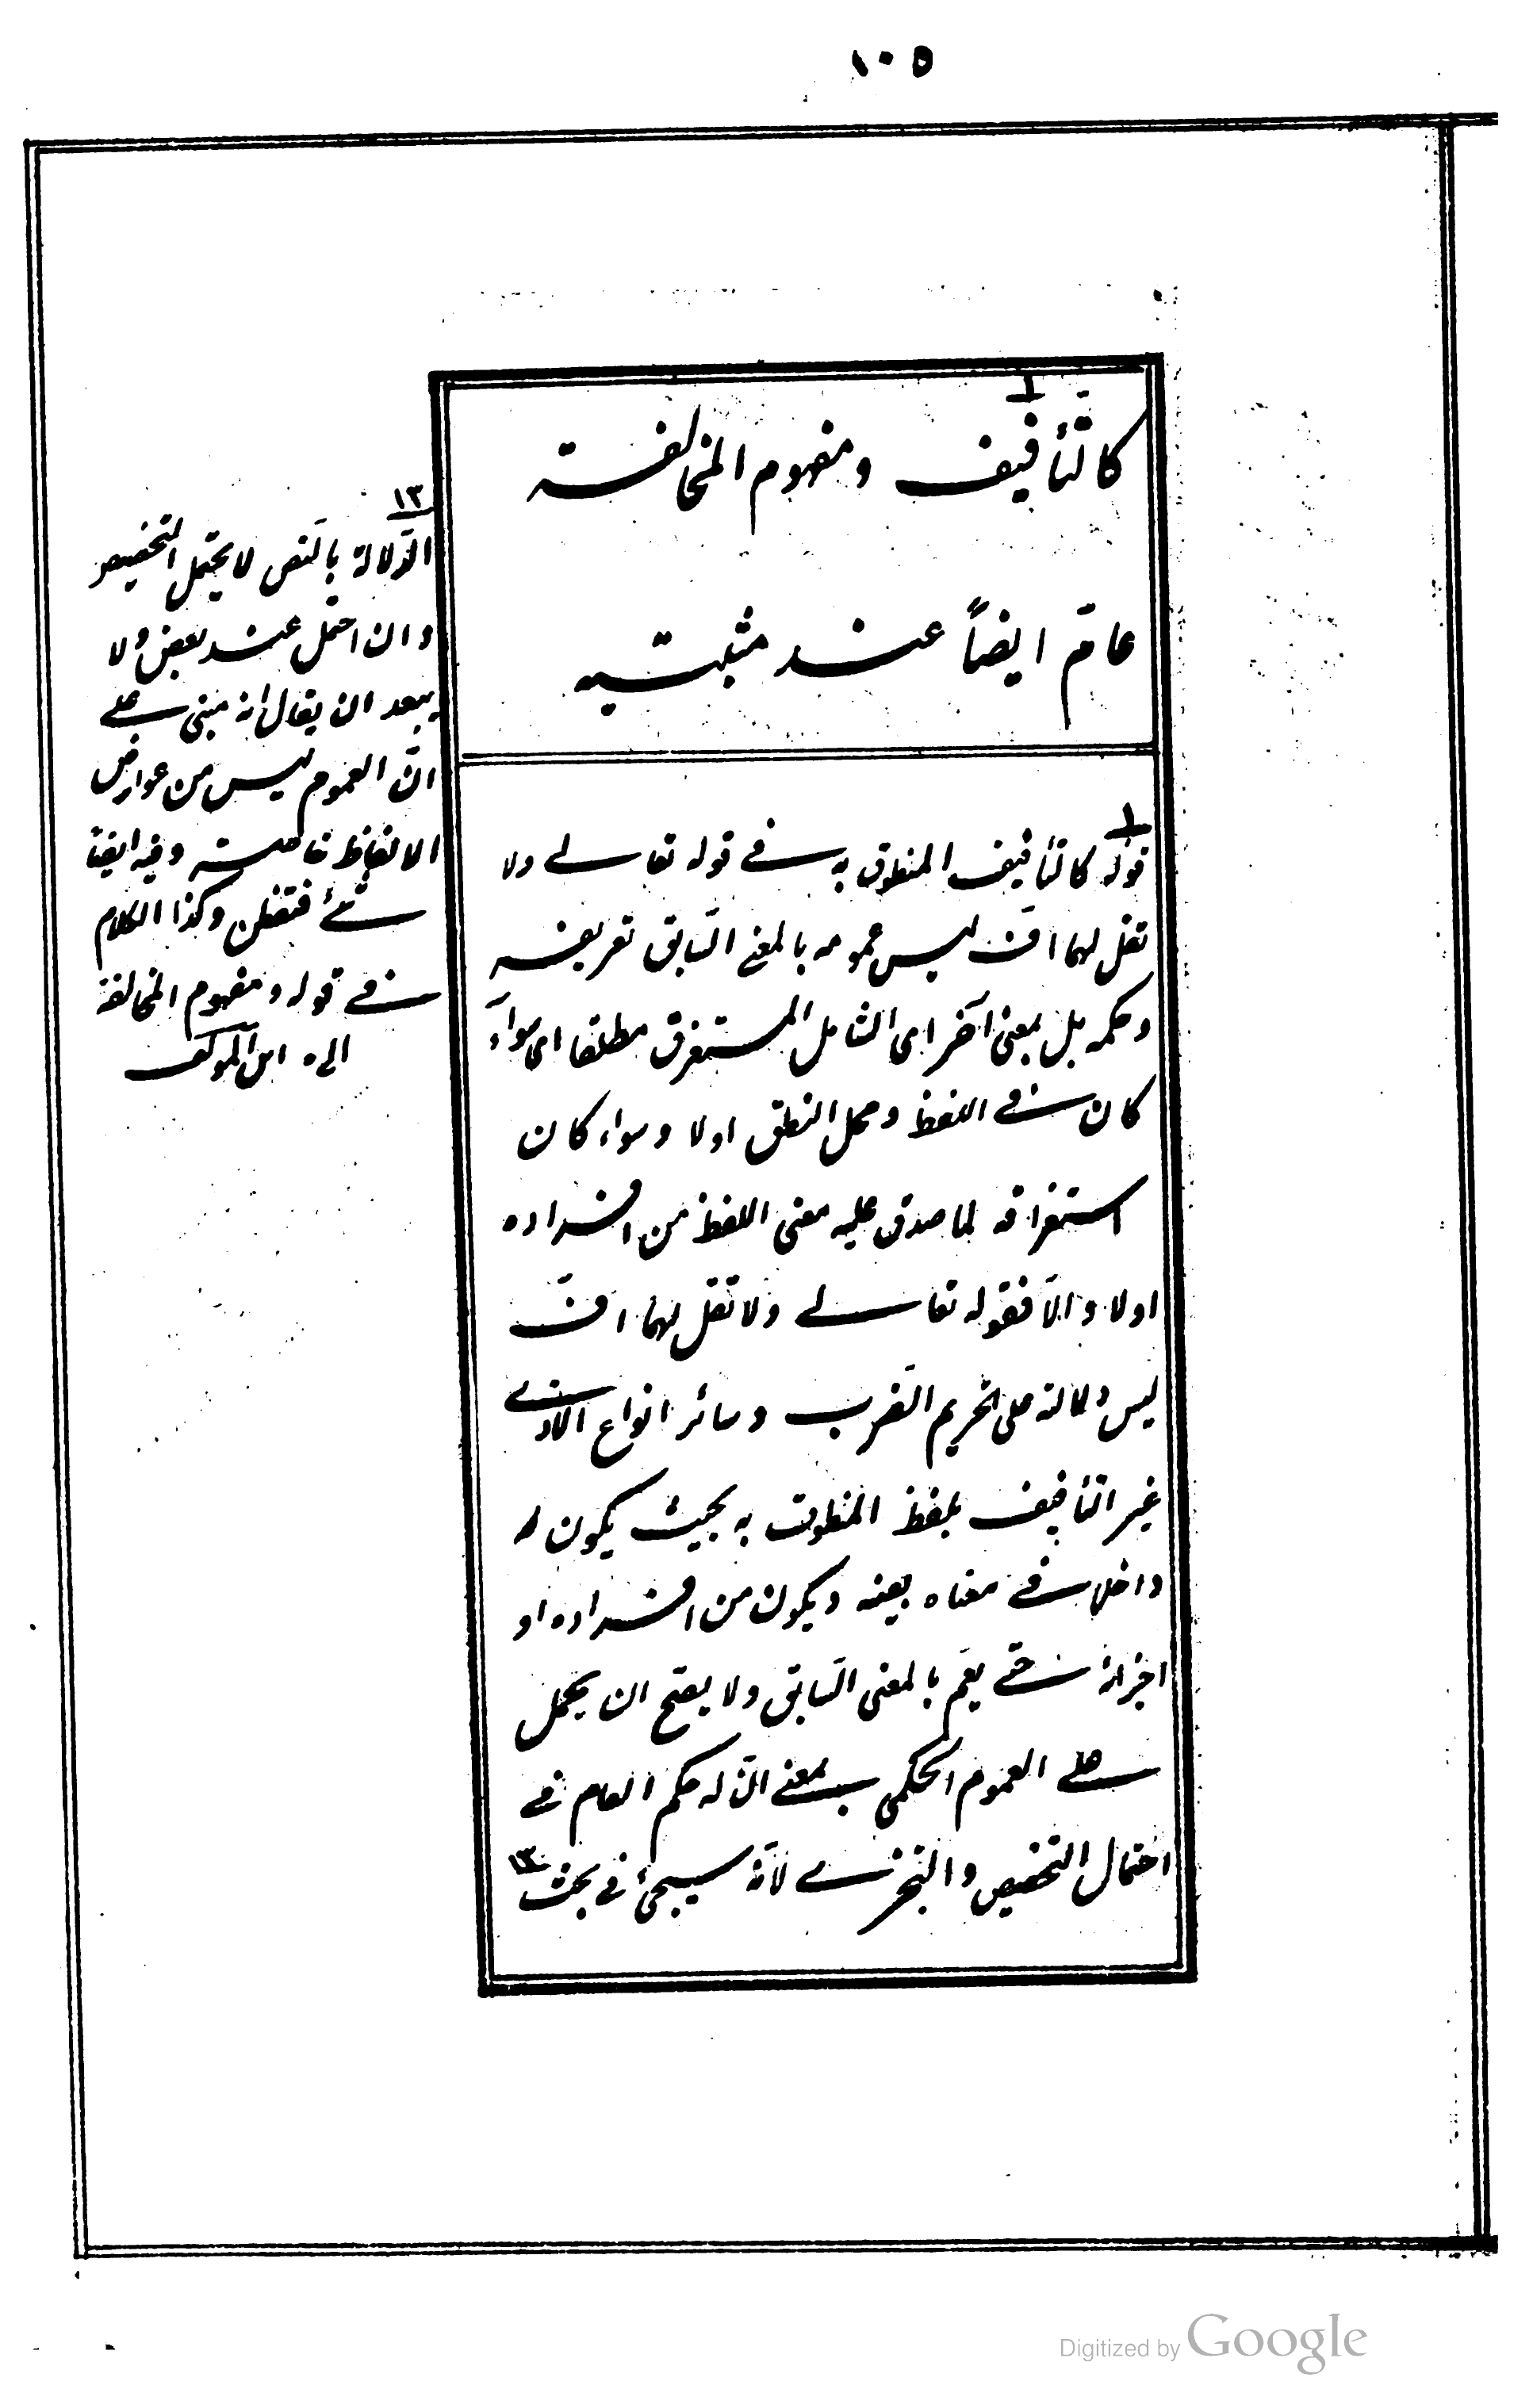 ١٠٥
١
كالتأفيف ومفهوم المخالفة
عامّ ايضاً عند مثبتيه
١
قوله كالتأفيف المنطوق به فى قوله تعالى ولا
تقل لهما افّ ليس عمومه بالمعنى السّابق تعريفه
وحكمه بل بمعنى آخر اى الشامل المستغرق مطلقا اى سواء
كان فى اللفظ ومحل النطق اولا وسواء كان
استغراقه لما صدق عليه معنى اللفظ من افراده
اولا والّا فقوله تعالى ولا تقل لهما افّ
ليس دلالته على تحريم الضّرب وسائر انواع الاذى
غير التأفيف بلفظ المنطوق به بحيث يكون له
داخلا فى معناه بعينه ويكون من افراده او
اجزائه حتى يعمّ بالمعنى السّابق ولا يصحّ ان يحمل
على العموم الحكمى بمعنى انّ له حكم العام فى
احتمال التخصيص والتجزى لأنّه سيجئ فى بحث ١٣
١٣
الدّلالة بالنّص لا يحتمل التخصيص
وان احتمل عند بعض ولا
يبعد ان يقال انه مبنى على
انّ العموم ليس من عوارض
الالفاظ خاصة وفيه ايضا
شئ فتفطن وكذا الكلام
فى قوله ومفهوم المخالفة
الى ه ابن المؤلف
Digitized by Google